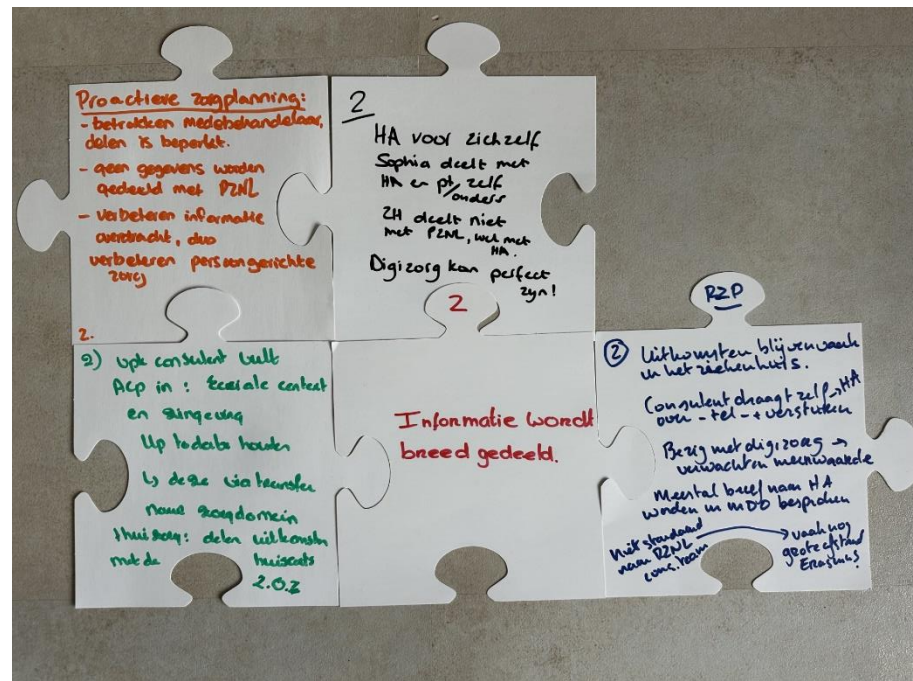 Proactieve zorgplanning:
- betrokken medebehandelaar,
delen is beperkt.
- geen gegevens worden
gedeeld met PZNL
- verbeteren informatie
overdracht, dus
verbeteren persoongerichte
zorg
2.
2
HA voor zichzelf
Sophia deelt met
HA en pt/zelf
ouders
ZH deelt niet
met PZNL, wel met
HA.
Digizorg kan perfect
zijn!
2)
consulent vult
ACP in: context
en zingeving
Up to date houden
↳ deze via transfer
naar zorgdomein
thuiszorg: delen uitkomsten
met de huisarts
2.0.2
2
Informatie wordt
breed gedeeld.
RZP
2 Uitkomsten blijven vaak
in het ziekenhuis.
Consulent draagt zelf → HA
over - tel - + versturen
Bezig met digizorg →
verwachten meerwaarde
Meestal brief naar HA
worden in MDO besproken
Niet standaard
naar PZNL
team
→ vaak nog
Erasmus!